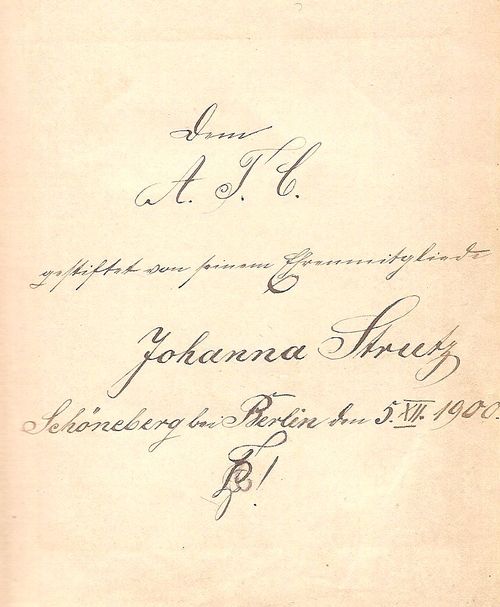 Dem
A. T. C.
gestiftet von seinem Ehrenmitgliede
Johanna Streetz
Schöneberg bei Berlin den 5. XII. 1900.